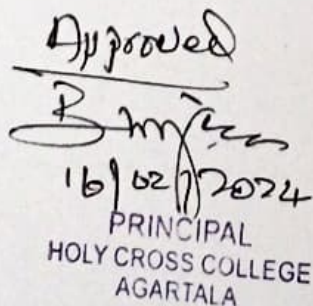 Approved
16/02/2024
PRINCIPAL
HOLY CROSS COLLEGE
AGARTALA